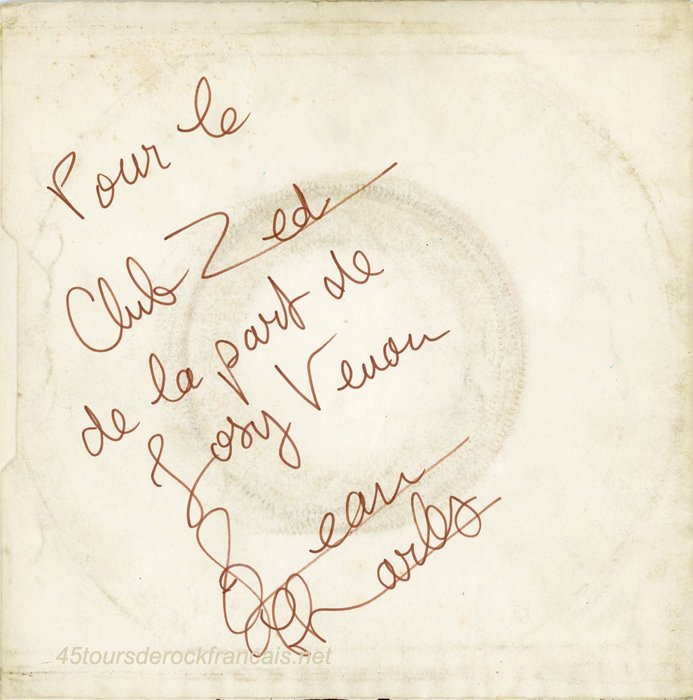 Pour le
Club Zed
de la part de
Josy Venon
Jean
Charles
45toursderockfrancais.net